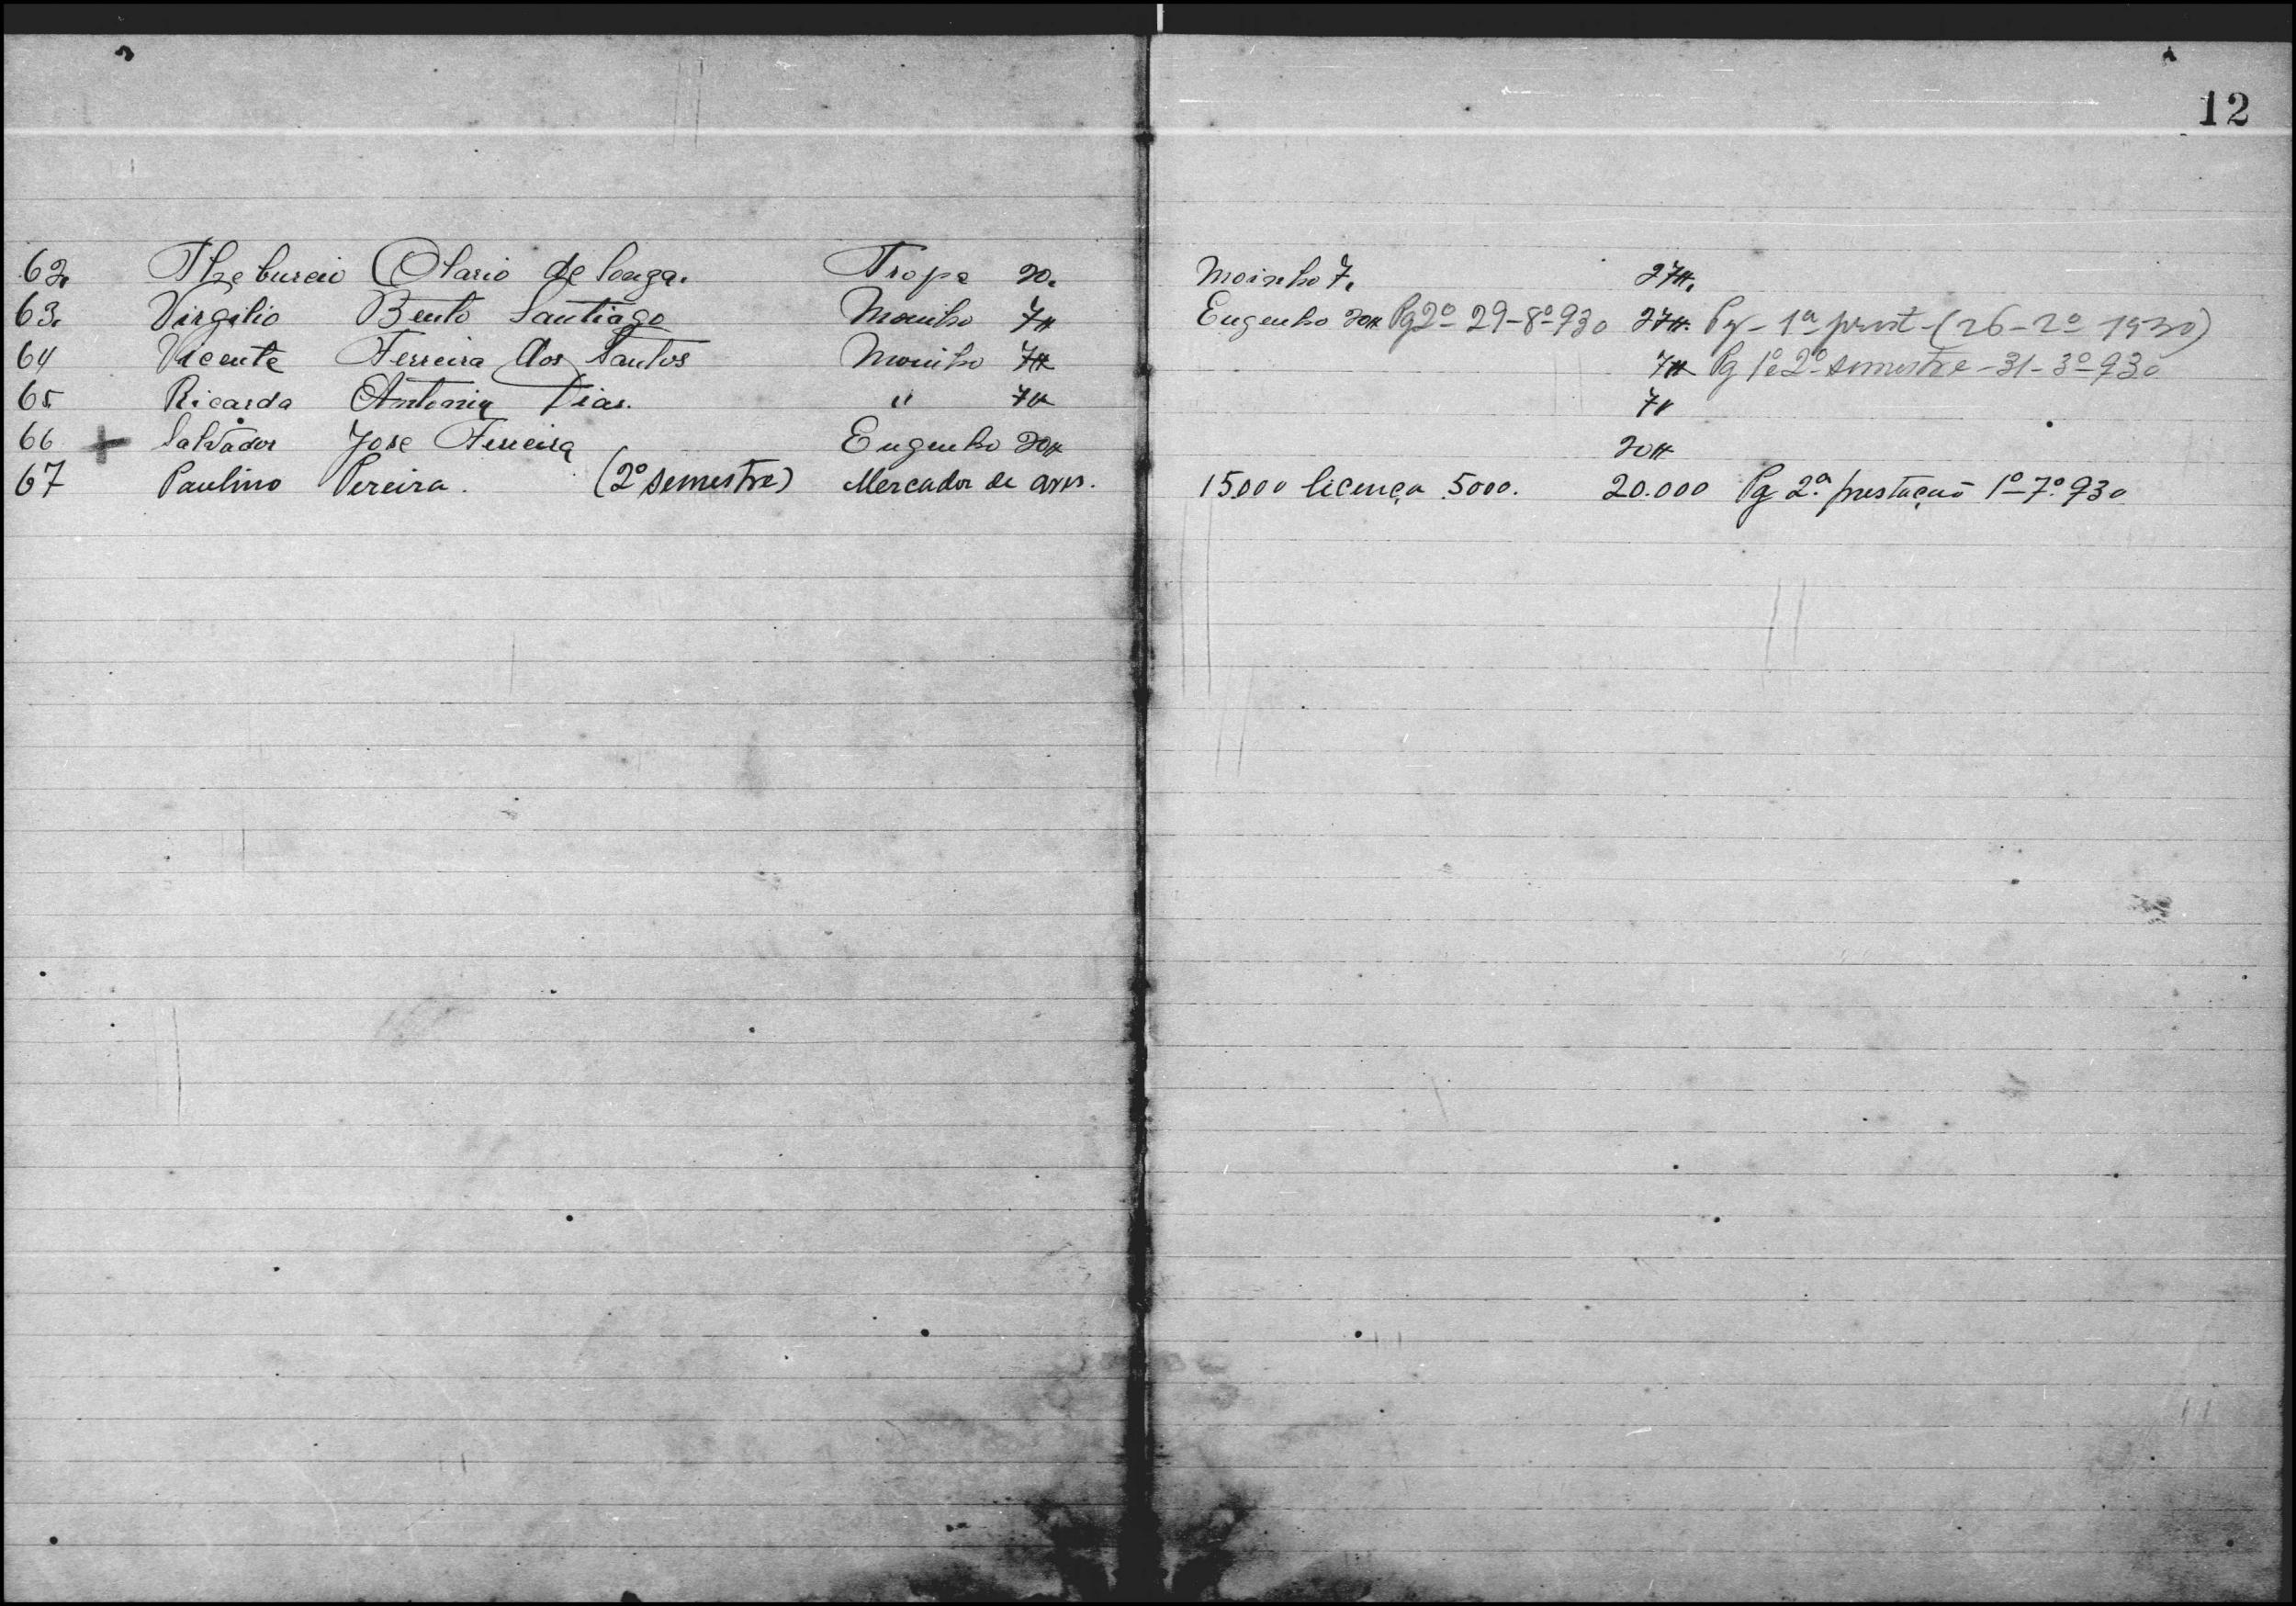 12
62. Theburcio Olario de Souza. Tropa 20. Moinho 7. 27#.
63. Virgilio Bento Santiago Moinho 7# Engenho 20# Pg 2º 29-8º-930 27#. Pg - 1ª prest - (26-2º 1930)
64 Vicente Ferreira dos Santos Moinho 7# 7# Pg 1º e 2º semestre - 31-3º-930
65 Ricarda Antonia Dias. " 7# 7#
66 + Salvador Jose Ferreira Engenho 20# 20#
67 Paulino Pereira. (2º semestre) Mercador de aves. 15.000 licença 5000. 20.000 Pg 2ª prestação 1º-7º-930